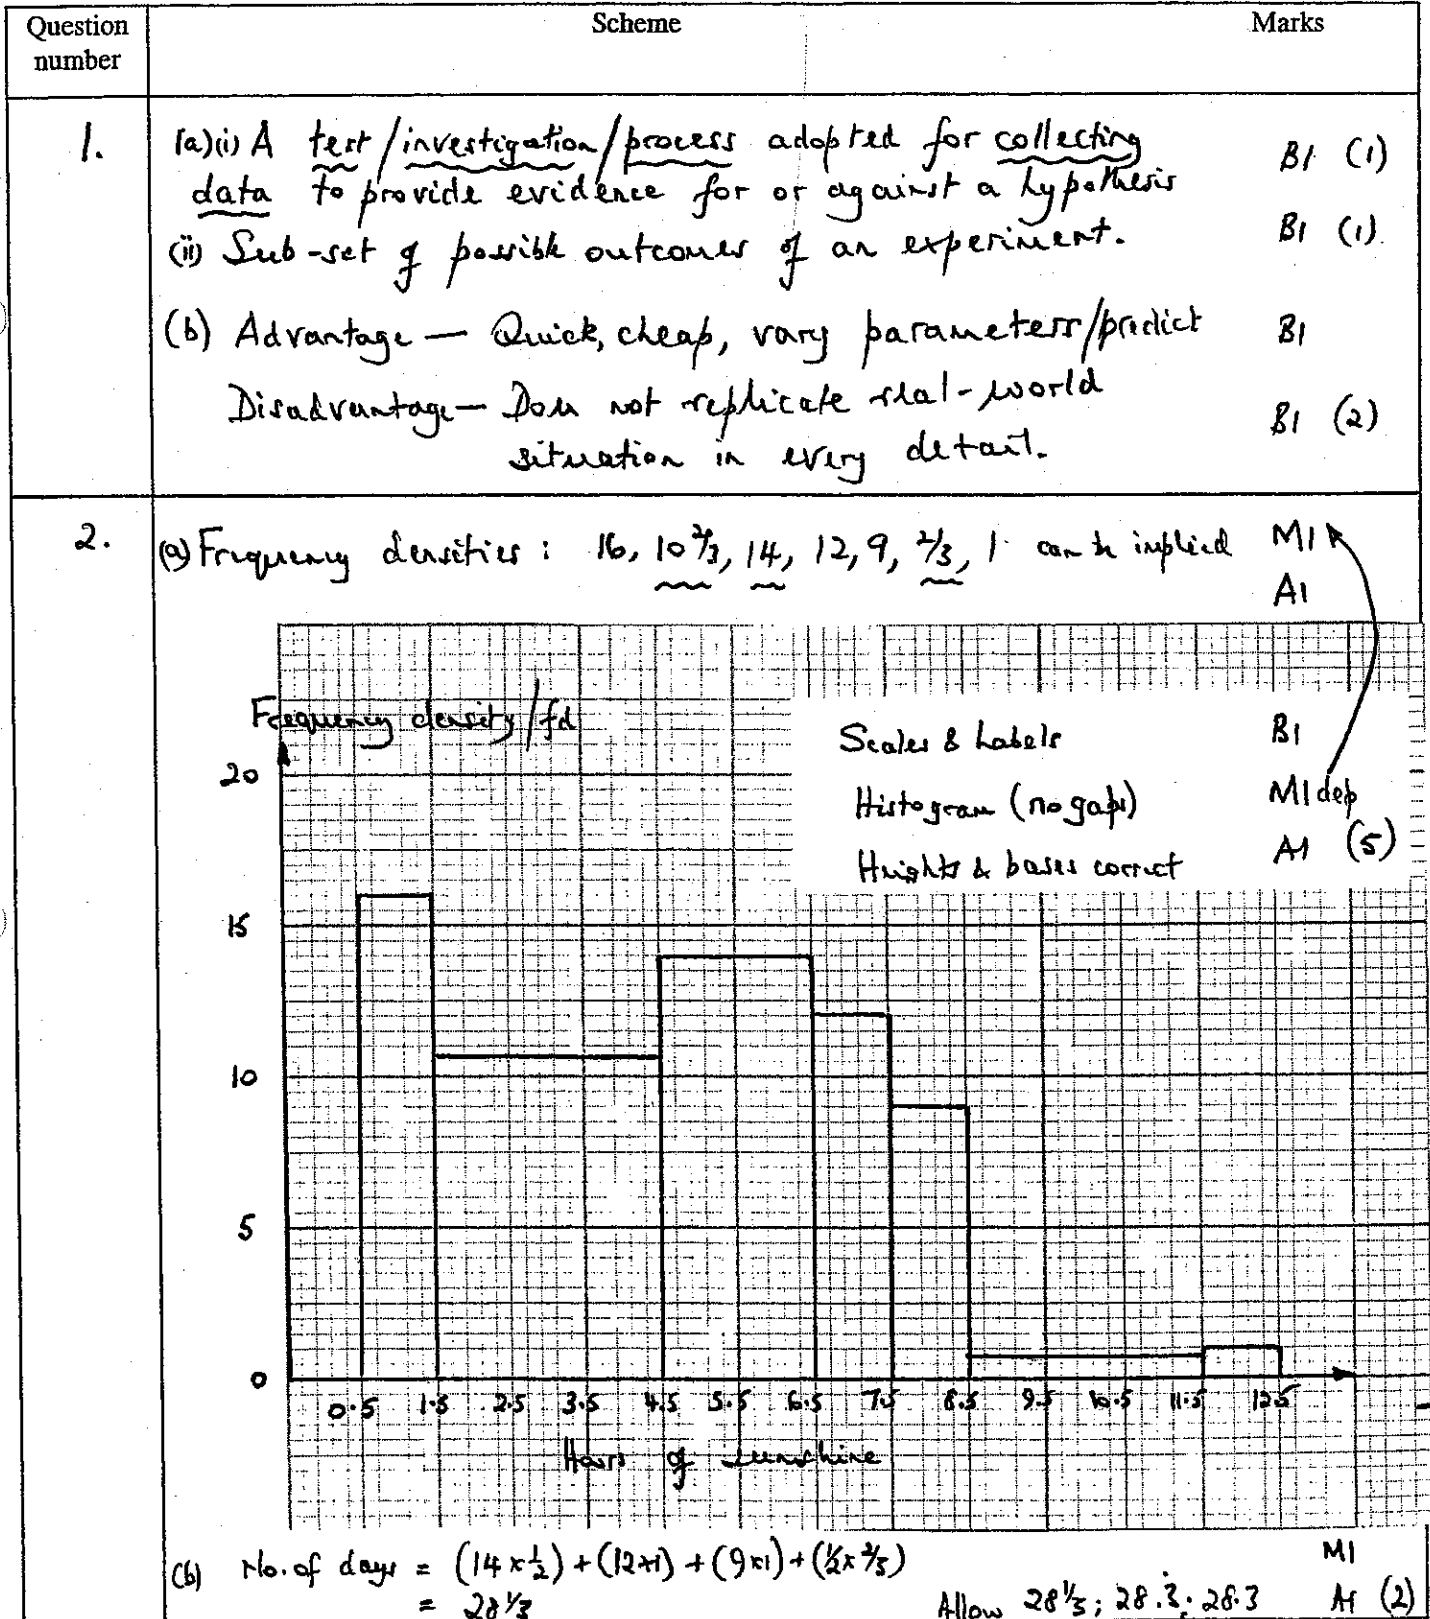 Question number Scheme Marks
1. (a)(i) A test/investigation/process adopted for collecting B1 (1)
data to provide evidence for or against a hypothesis
(ii) Sub-set of possible outcomes of an experiment. B1 (1)
(b) Advantage — Quick, cheap, vary parameters/predict B1
Disadvantage — Does not replicate real-world
situation in every detail. B1 (2)
2. (a) Frequency densities: 16, 10 2/3, 14, 12, 9, 2/3, 1 can be implied M1
A1
Frequency density/fd
Scales & Labels B1
Histogram (no gaps) M1 dep
Heights & bases correct A1 (5)
20
15
10
5
0
0.5 1.5 2.5 3.5 4.5 5.5 6.5 7.5 8.5 9.5 10.5 11.5 12.5
Hours of sunshine
(b) No. of days = (14 × 1/2) + (12×1) + (9×1) + (1/2 × 2/3) M1
= 28 1/3 Allow 28 1/3; 28.3̇; 28.3 A1 (2)